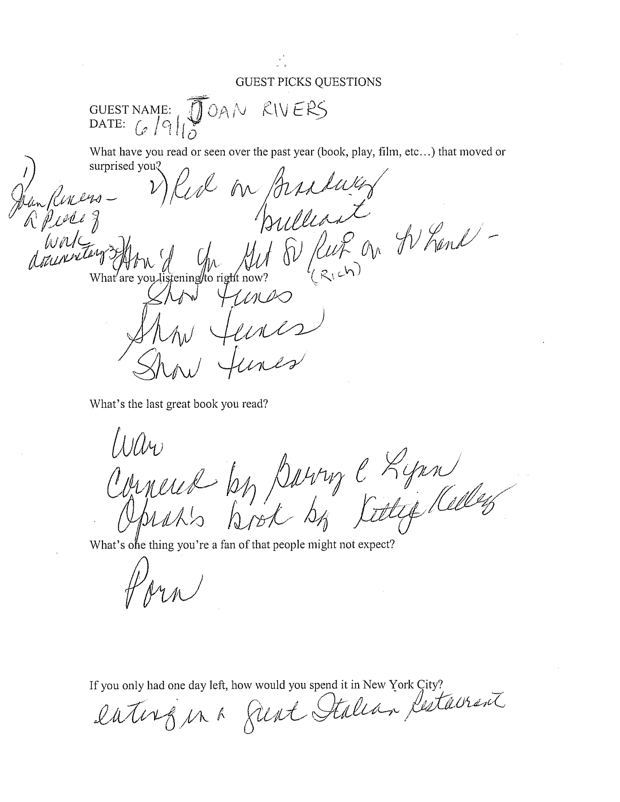 GUEST PICKS QUESTIONS
GUEST NAME: JOAN RIVERS
DATE: 6/9/10
What have you read or seen over the past year (book, play, film, etc…) that moved or
surprised you?
1)
Joan Rivers –
A Piece of
Work
documentary
2) Red on Broadway
brilliant
3) How'd You Get So Rich on TV Land –
(Rich)
What are you listening to right now?
Show tunes
Show tunes
Show tunes
What's the last great book you read?
War
Cornered by Barry C Lynn
Oprah's book by Kittie Kelley
What's one thing you're a fan of that people might not expect?
Porn
If you only had one day left, how would you spend it in New York City?
eating in a great Italian Restaurant